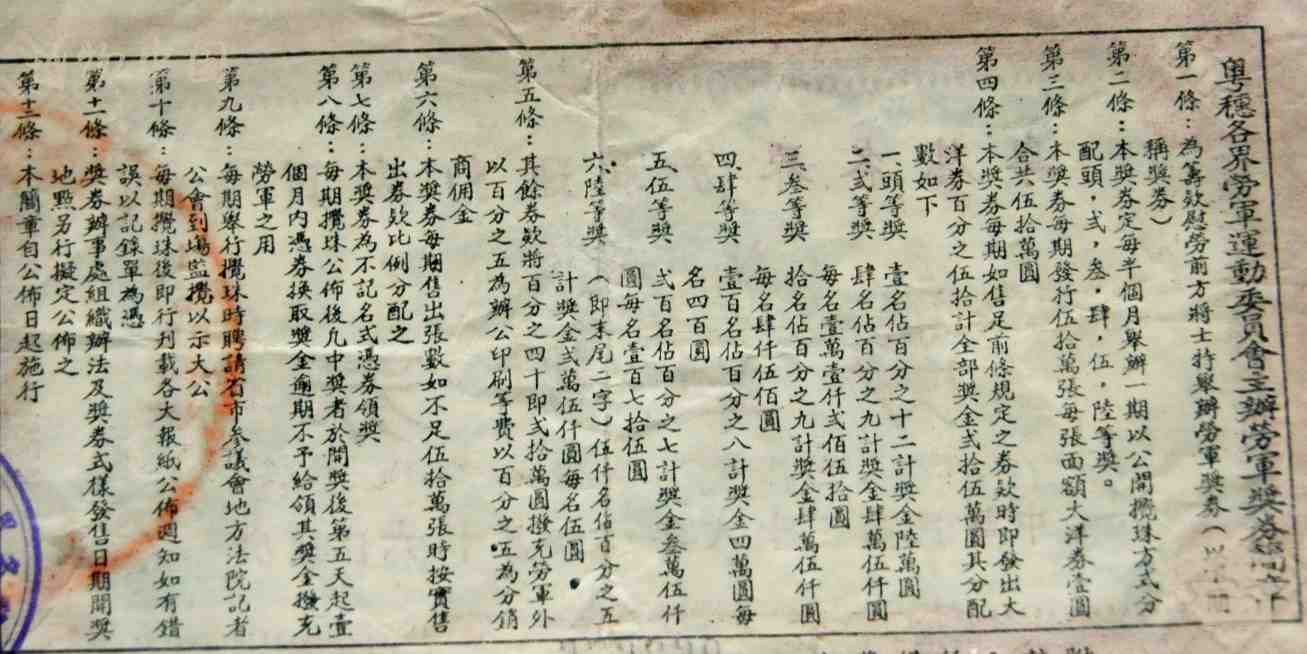 粤穗各界勞軍運動委員會主辦勞軍奬券簡章
第一條：為籌欵慰勞前方將士特舉辦勞軍奬券（以
稱奬券）
第二條：本奬券定每半個月舉辦一期以公開攪珠方式分
配頭，弍，叁，肆，伍，陸等奬。
第三條：本奬券每期發行伍拾萬張每張面額大洋券壹圓
合共伍拾萬圓
第四條：本奬券每期如售足前條規定之券欵時即發出大
洋券百分之伍拾計全部奬金弍拾伍萬圓其分配
數如下
一、頭等奬　壹名佔百分之十二計奬金陸萬圓
二、弍等奬　肆名佔百分之九計奬金肆萬伍仟圓
每名壹萬壹仟弍佰伍拾圓
三、叁等奬　拾名佔百分之九計奬金肆萬伍仟圓
每名肆仟伍佰圓
四、肆等奬　壹百名佔百分之八計奬金四萬圓每
名四百圓
五、伍等奬　弍百名佔百分之七計奬金叁萬伍仟
圓每名壹百七拾伍圓
六、陸等奬　（即末尾二字）伍仟名佔百分之五
計奬金弍萬伍仟圓每名伍圓
第五條：其餘券欵將百分之四十即弍拾萬圓撥充勞軍外
以百分之五為辦公印刷等費以百分之五為分銷
商佣金
第六條：本奬券每期售出張數如不足伍拾萬張時按實售
出券欵比例分配之
第七條：本奬券為不記名式憑券領奬
第八條：每期攪珠公佈後凡中奬者於開奬後第五天起壹
個月內憑券換取奬金逾期不予給領其奬金撥充
勞軍之用
第九條：每期舉行攪珠時聘請省市參議會地方法院記者
公會到場監攪以示大公
第十條：每期攪珠後即行刋載各大報紙公佈週知如有錯
誤以記錄單為憑
第十一條：奬券辦事處組織辦法及奬券式樣發售日期開奬
地㸃另行擬定公佈之
第十二條：本簡章自公佈日起施行